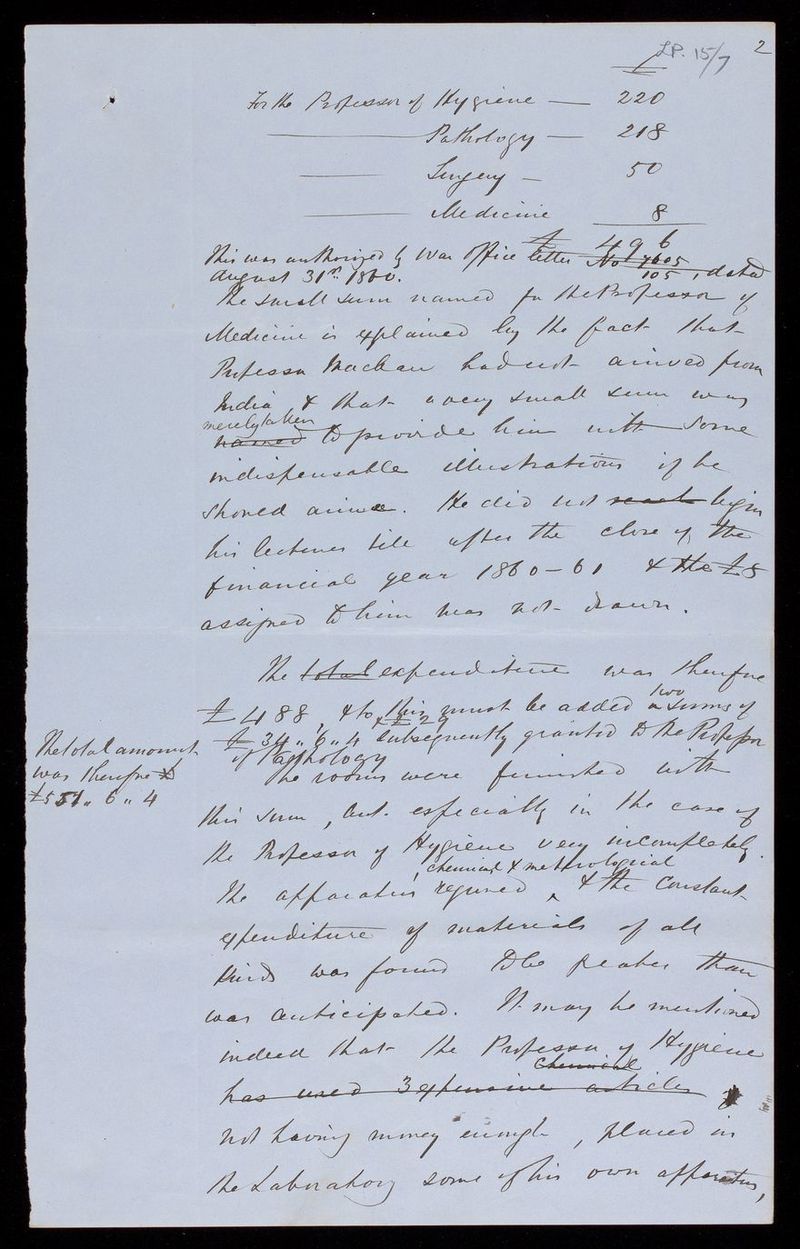 L.P. 15/7 2
£
For the Professor of Hygiene — 220
——— Pathology — 218
——— Surgery — 50
——— Medicine 8
£ 496
This was authorized by War Office letter No 7605/105, dated
August 31st 1860.
The small sum named for the Professor of
Medicine is explained by the fact that
Professor Maclean had not arrived from
India & that a very small sum was
merely taken
named to provide him with some
indispensable illustrations if he
should arrive. He did not begin
his lectures till after the close of the
financial year 1860–61 & the £8
assigned to him was not drawn.
The total expenditure was therefore
£488, & to this must be added two sums of
£34 " 6 " 4 & £29 subsequently granted to the Professor
of Pathology
The total amount
was therefore
£551 " 6 " 4
The rooms were furnished with
this sum, but especially in the case of
the Professor of Hygiene very incompletely.
chemical & meteorological
The apparatus required, & the constant
expenditure of materials of all
kinds was found to be greater than
was anticipated. It may be mentioned
indeed that the Professor of Hygiene
chemical
has used 3 expensive articles
not having money enough, placed in
the Laboratory some of his own apparatus,